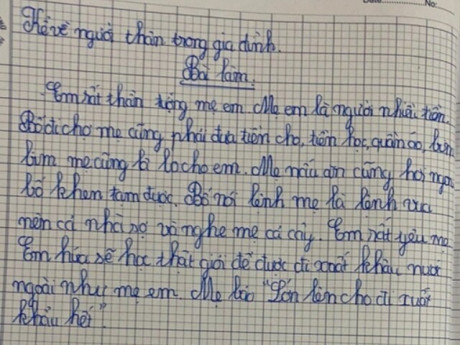 Kể về người thân trong gia đình.
Bài làm.
Em rất thần tượng mẹ em. Mẹ em là người nhiều tiền.
Bố đi chợ mẹ cũng phải đưa tiền cho, tiền học, quần áo, bim
bim mẹ cũng lo cho em. Mẹ nấu ăn cũng hơi ngon
bố khen tạm được. Bố nói lệnh mẹ là lệnh vua
nên cả nhà sợ và nghe mẹ cả cây. Em rất yêu mẹ
Em hứa sẽ học thật giỏi để được đi xuất khẩu nước
ngoài như mẹ em. Mẹ bảo "Lớn lên cho đi xuất
khẩu hết".